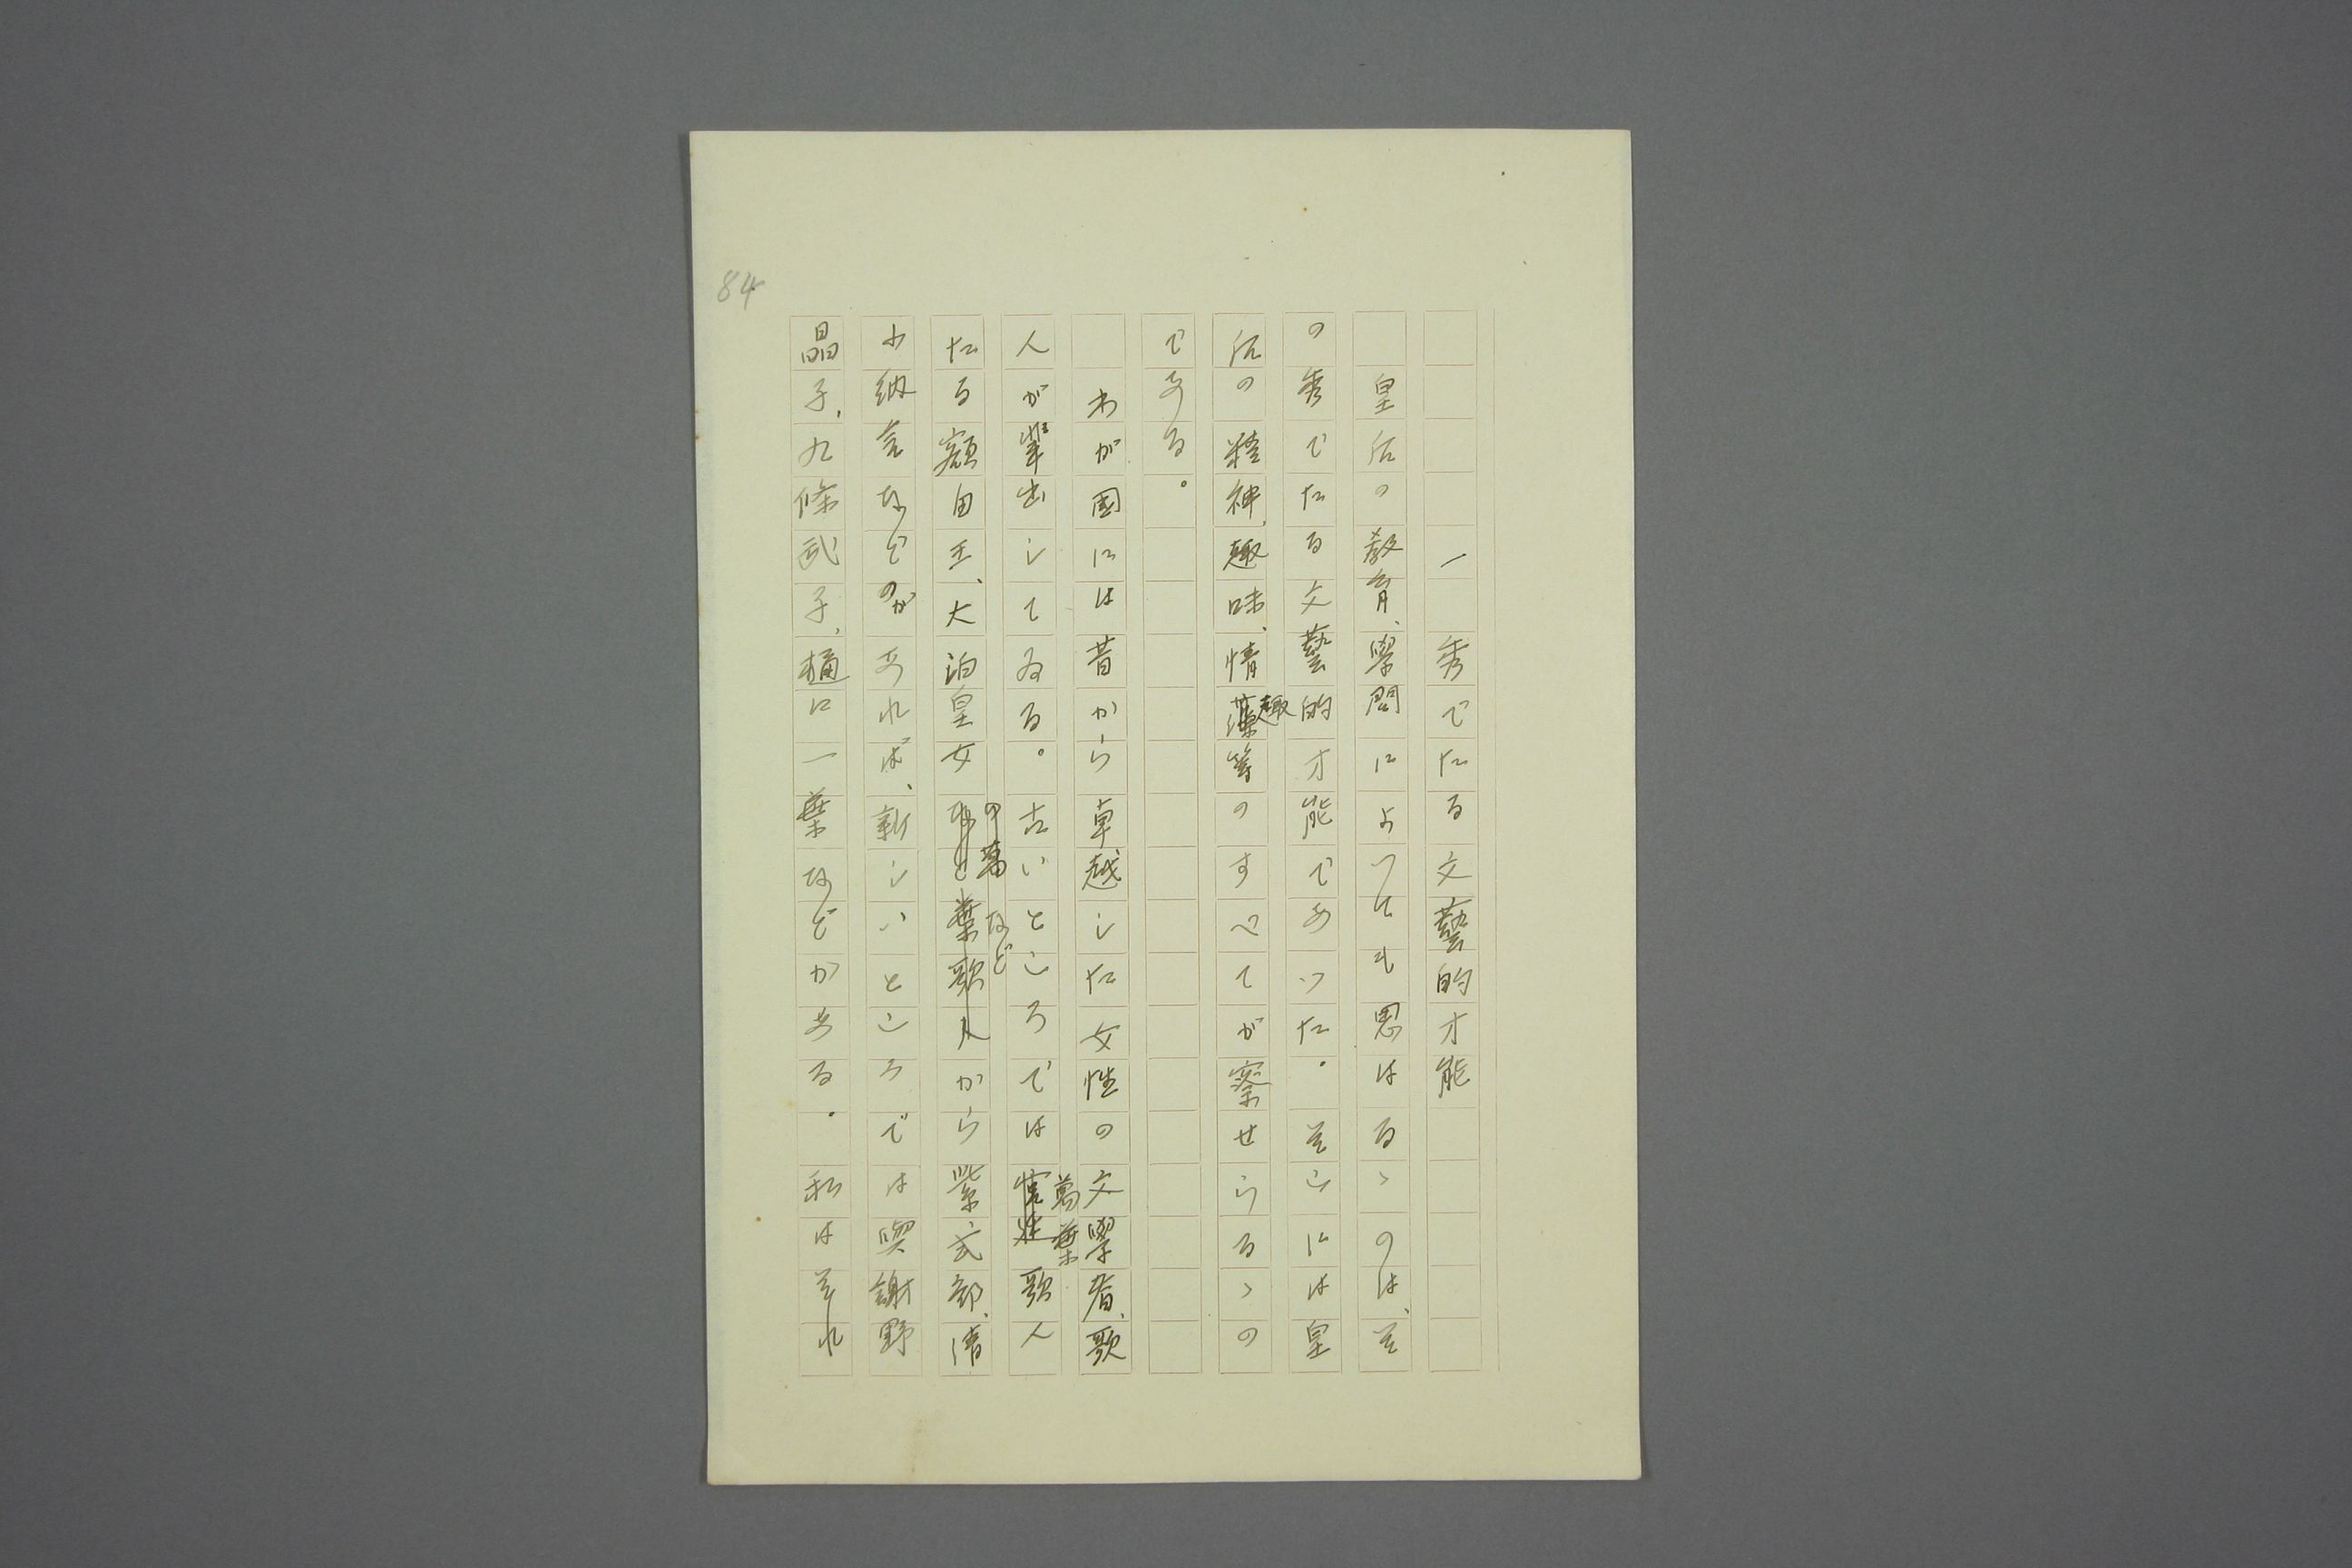 84
一　秀でたる文藝的才能
皇后の教育、學問によつても思はるゝのは、そ
の秀でたる文藝的才能であつた。そこには皇
后の精神、趣味、情藻趣等のすべてが察せらるゝの
である。
わが國には昔から卓越した女性の文學者、歌
人が輩出してゐる。古いところでは萬葉歌人
たる額田王、大泊皇女の萬葉歌人などから紫式部、清
少納言などのがあれば、新しいところでは與謝野
晶子、九條武子、樋口一葉などがある。私はそれ